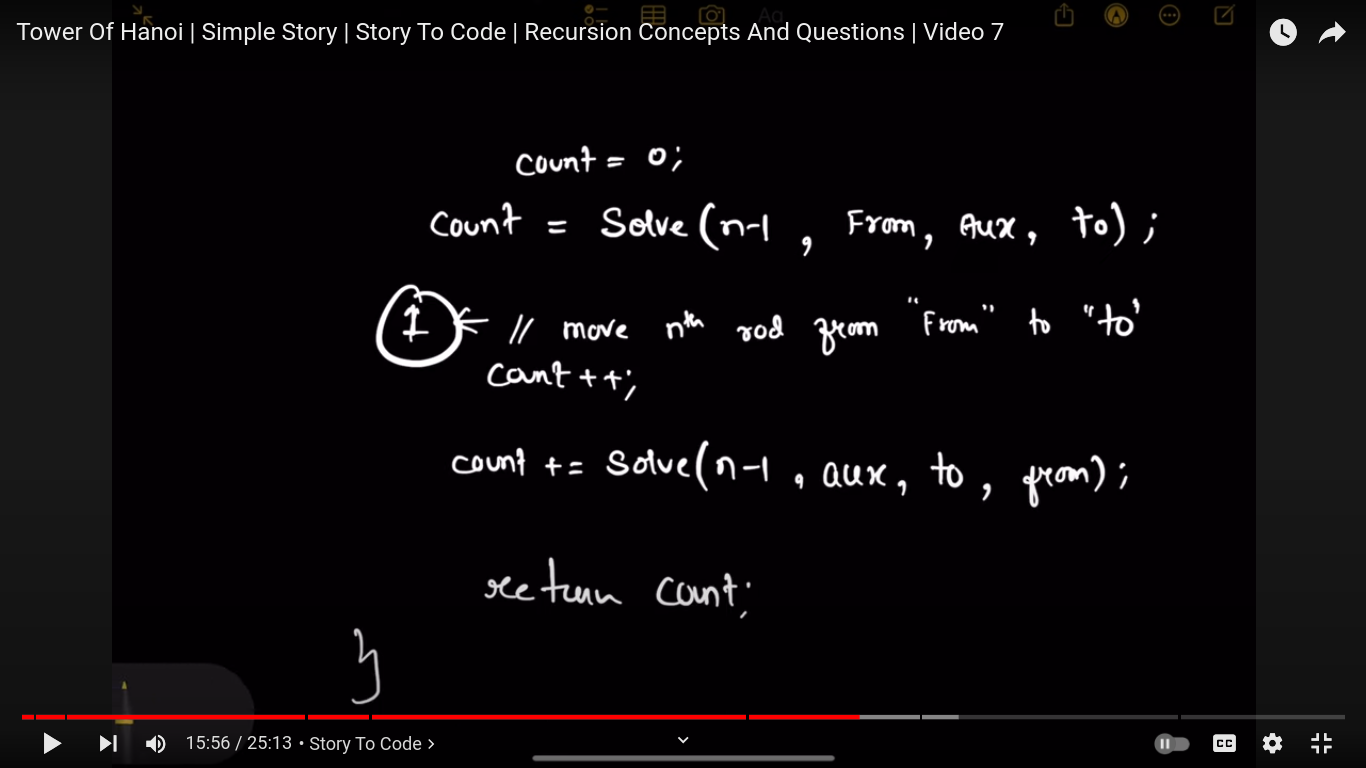 Tower Of Hanoi | Simple Story | Story To Code | Recursion Concepts And Questions | Video 7
Aa
count = 0;
count = Solve(n-1, From, Aux, to);
1 ← // move nth rod from "From" to "to"
count ++;
count += Solve(n-1, aux, to, from);
return count;
}
15:56 / 25:13 • Story To Code >
CC